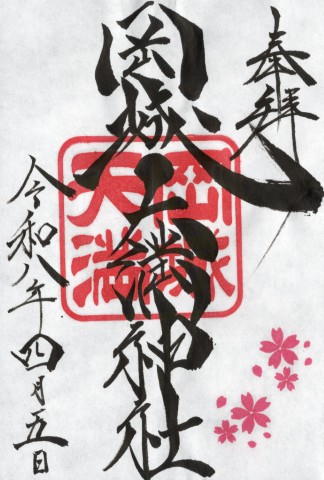 奉拝
岡城天満神社
岡城
天満
令和八年四月五日